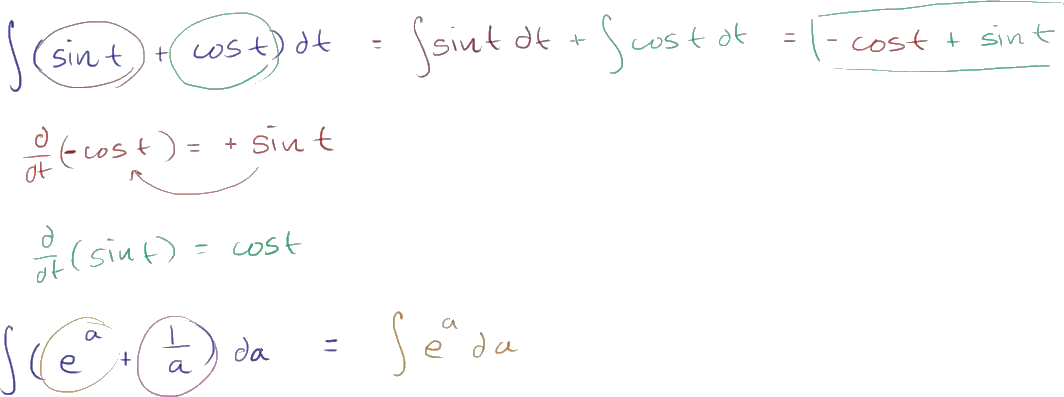 ∫(sin t + cos t) dt = ∫sin t dt + ∫cos t dt = -cos t + sin t
d/dt (-cos t) = + sin t
d/dt (sin t) = cos t
∫(e^a + 1/a) da = ∫e^a da